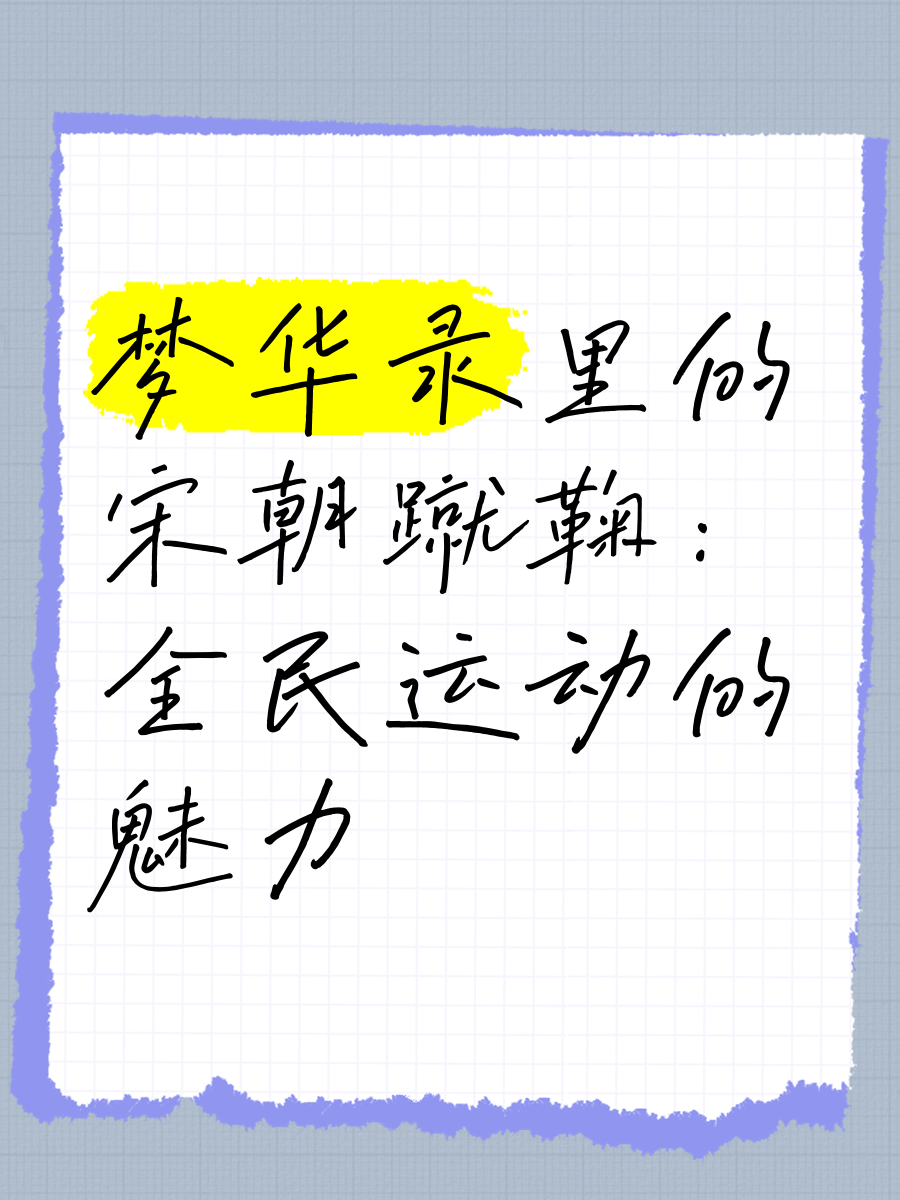 梦华录里的
宋朝蹴鞠：
全民运动的
魅力